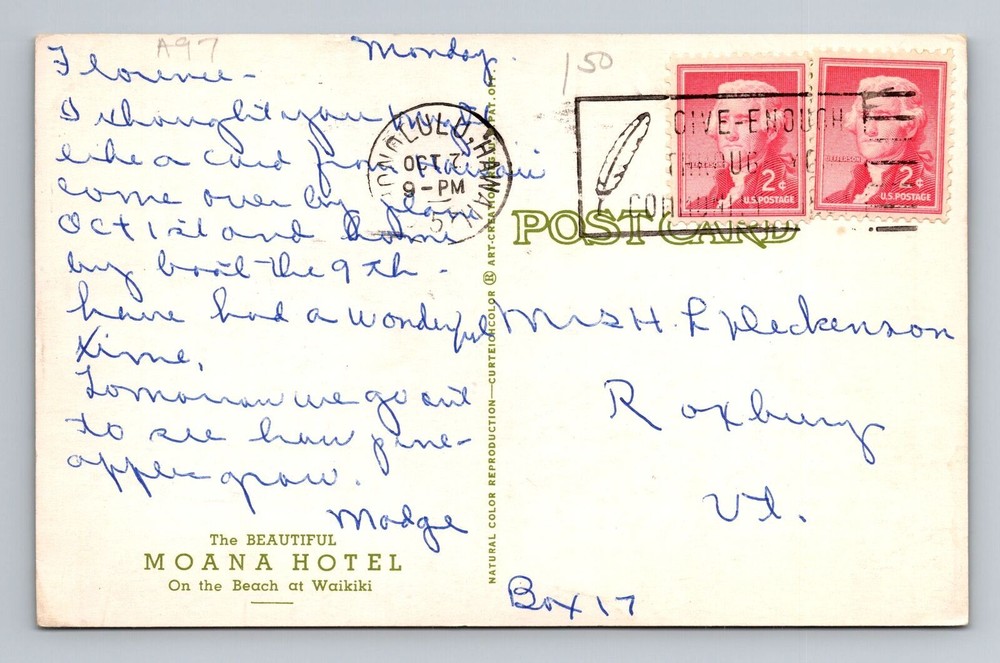 A97
Monday.
150
Florence -
I thought you might
like a card from Hawaii
come over by plane
Oct 1st and home
by boat the 9th -
have had a wonderful
time.
Tomorrow we go out
to see how pine-
apples grow.
Madge
The BEAUTIFUL
MOANA HOTEL
On the Beach at Waikiki
HONOLULU, HAWAII
OCT 7
9-PM
NATURAL COLOR REPRODUCTION—CURTEICHCOLOR ® ART-CREATION
PAT. OFF.
GIVE-ENOUGH
THROUGH YOUR
COMMUNITY
JEFFERSON
2¢
U.S. POSTAGE
JEFFERSON
2¢
U.S. POSTAGE
POST CARD
Mrs H. L Dickenson
Roxbury
Vt.
Box 17